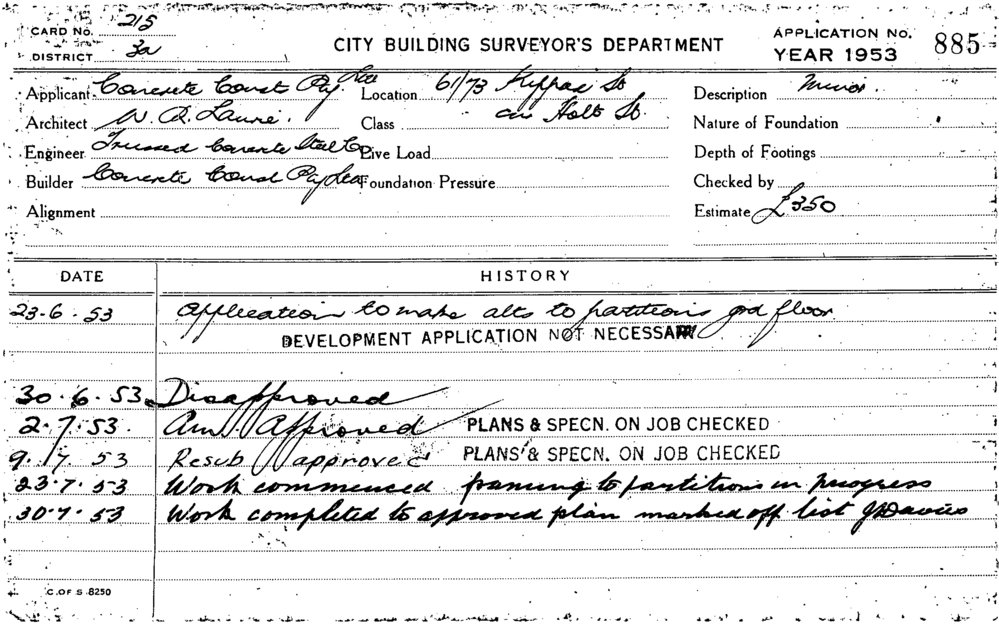 CARD No. 215
DISTRICT 3a
CITY BUILDING SURVEYOR'S DEPARTMENT
APPLICATION No. 885
YEAR 1953
Applicant Concrete Const Pty Ltd
Location 61/73 Kippax St
cnr Holt St.
Description Minor.
Architect W. R. Laurie.
Class
Nature of Foundation
Engineer Trussed Concrete Steel Co
Live Load
Depth of Footings
Builder Concrete Const Pty Ltd
Foundation Pressure
Checked by
Alignment
Estimate £350
DATE HISTORY
23.6.53 Application to make alts to partitions grd floor
DEVELOPMENT APPLICATION NOT NECESSARY
30.6.53 Disapproved
2.7.53. Am Approved PLANS & SPECN. ON JOB CHECKED
9.7.53 Resub approved PLANS & SPECN. ON JOB CHECKED
23.7.53 Work commenced framing to partitions in progress
30.7.53 Work completed to approved plan marked off list J Davies
C. OF S. 8250